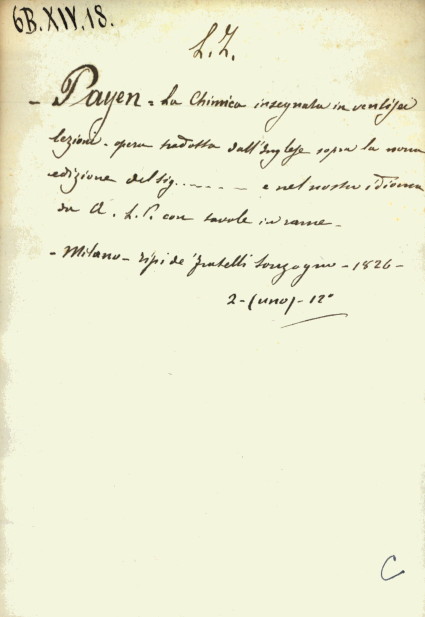 6B.XIV.18.
L.Z.
- Payen = La Chimica insegnata in ventisei
lezioni - opera tradotta dall'Inglese sopra la nona
edizione del sig. - - - - - e nel nostro idioma
da A. L. P. con tavole in rame -
- Milano - Tipi de' fratelli Sonzogno - 1826 -
2 - (uno) - 12°
C